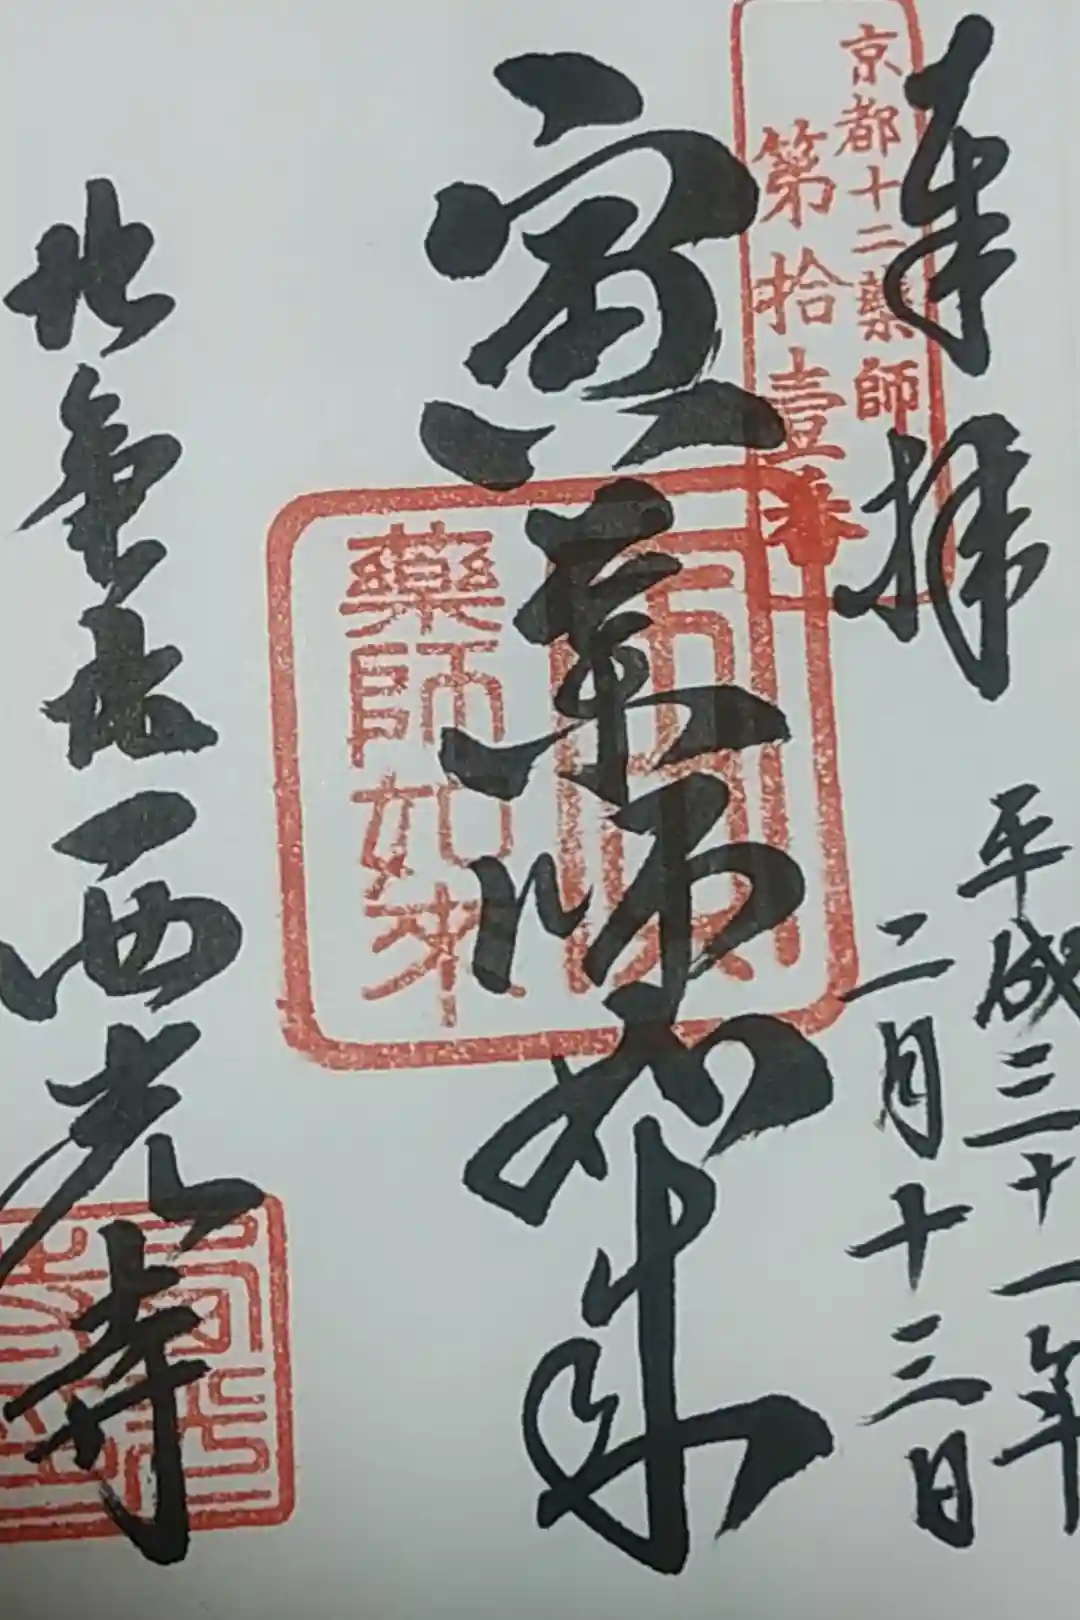 奉拝
京都十二藥師
第拾壹番
平成三十一年
二月十三日
寅薬師如来
藥師如来
西光寺